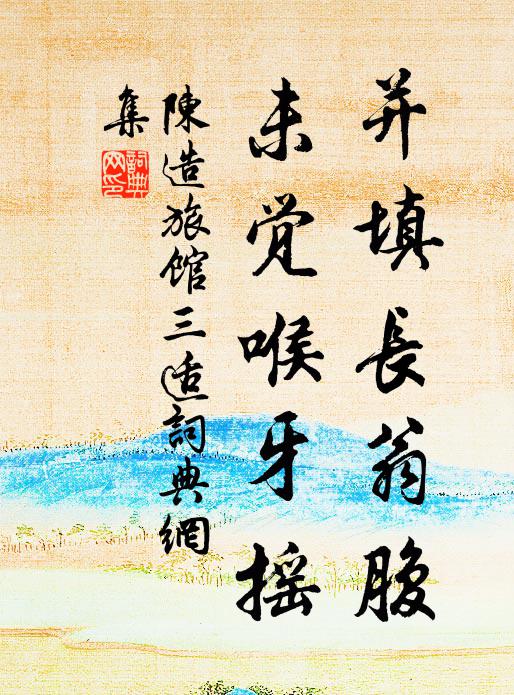 并填長翁腹
未觉喉牙摇
陳造旅馆三适詞典網
集
詞典网印